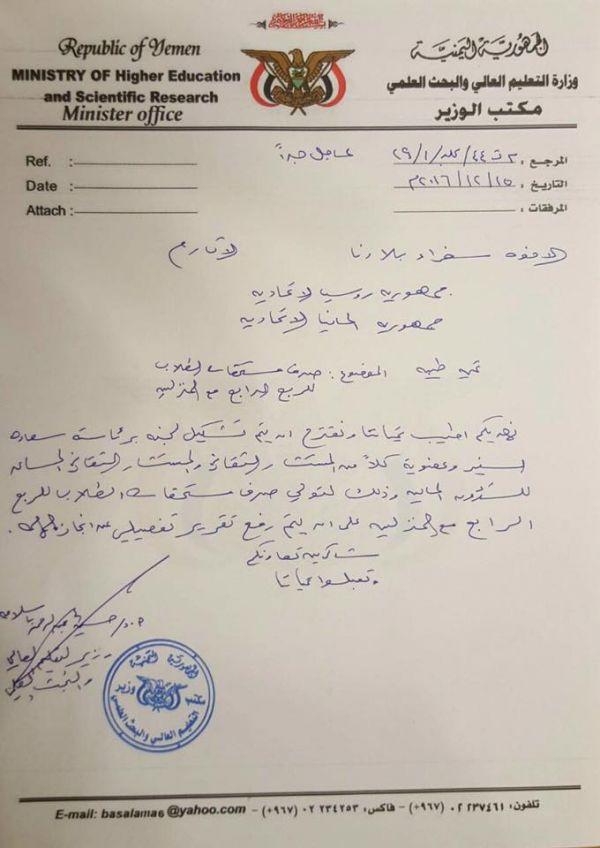 الجمهورية اليمنية
وزارة التعليم العالي والبحث العلمي
مكتب الوزير
Republic of Yemen
MINISTRY OF Higher Education
and Scientific Research
Minister office
المرجع :
عاجل جداً
التاريخ : ٢٠١٦/١٢/١٥م
المرفقات :
Ref. :
Date :
Attach :
الاخوه سفراء بلادنا الاكارم
جمهوريه روسيا الاتحاديه
جمهوريه المانيا الاتحاديه
تحيه طيبه الموضوع : صرف مستحقات الطلاب
للربع الرابع مع المنزليه
نهديكم اطيب تحياتنا ونقترح ان يتم تشكيل لجنه برئاسة سعاده
السفير وعضوية كلاً من المستشار الثقافي والمستشار الثقافي المساعد
للشؤون الماليه وذلك لتولي صرف مستحقات الطلاب للربع
الرابع مع المنزليه على ان يتم رفع تقرير تفصيلي عن انجاز
شاكرين تعاونكم
وتقبلوا تحياتنا
وزير التعليم العالي
والبحث العلمي
الجمهورية اليمنية
وزير
التعليم العالي والبحث العلمي
E-mail: basalama6@yahoo.com – فاكس: ٢٣٤٢٥٣ ٠٢ (٩٦٧+) – تلفون: ٢٣٧٤٦١ ٠٢ (٩٦٧+)